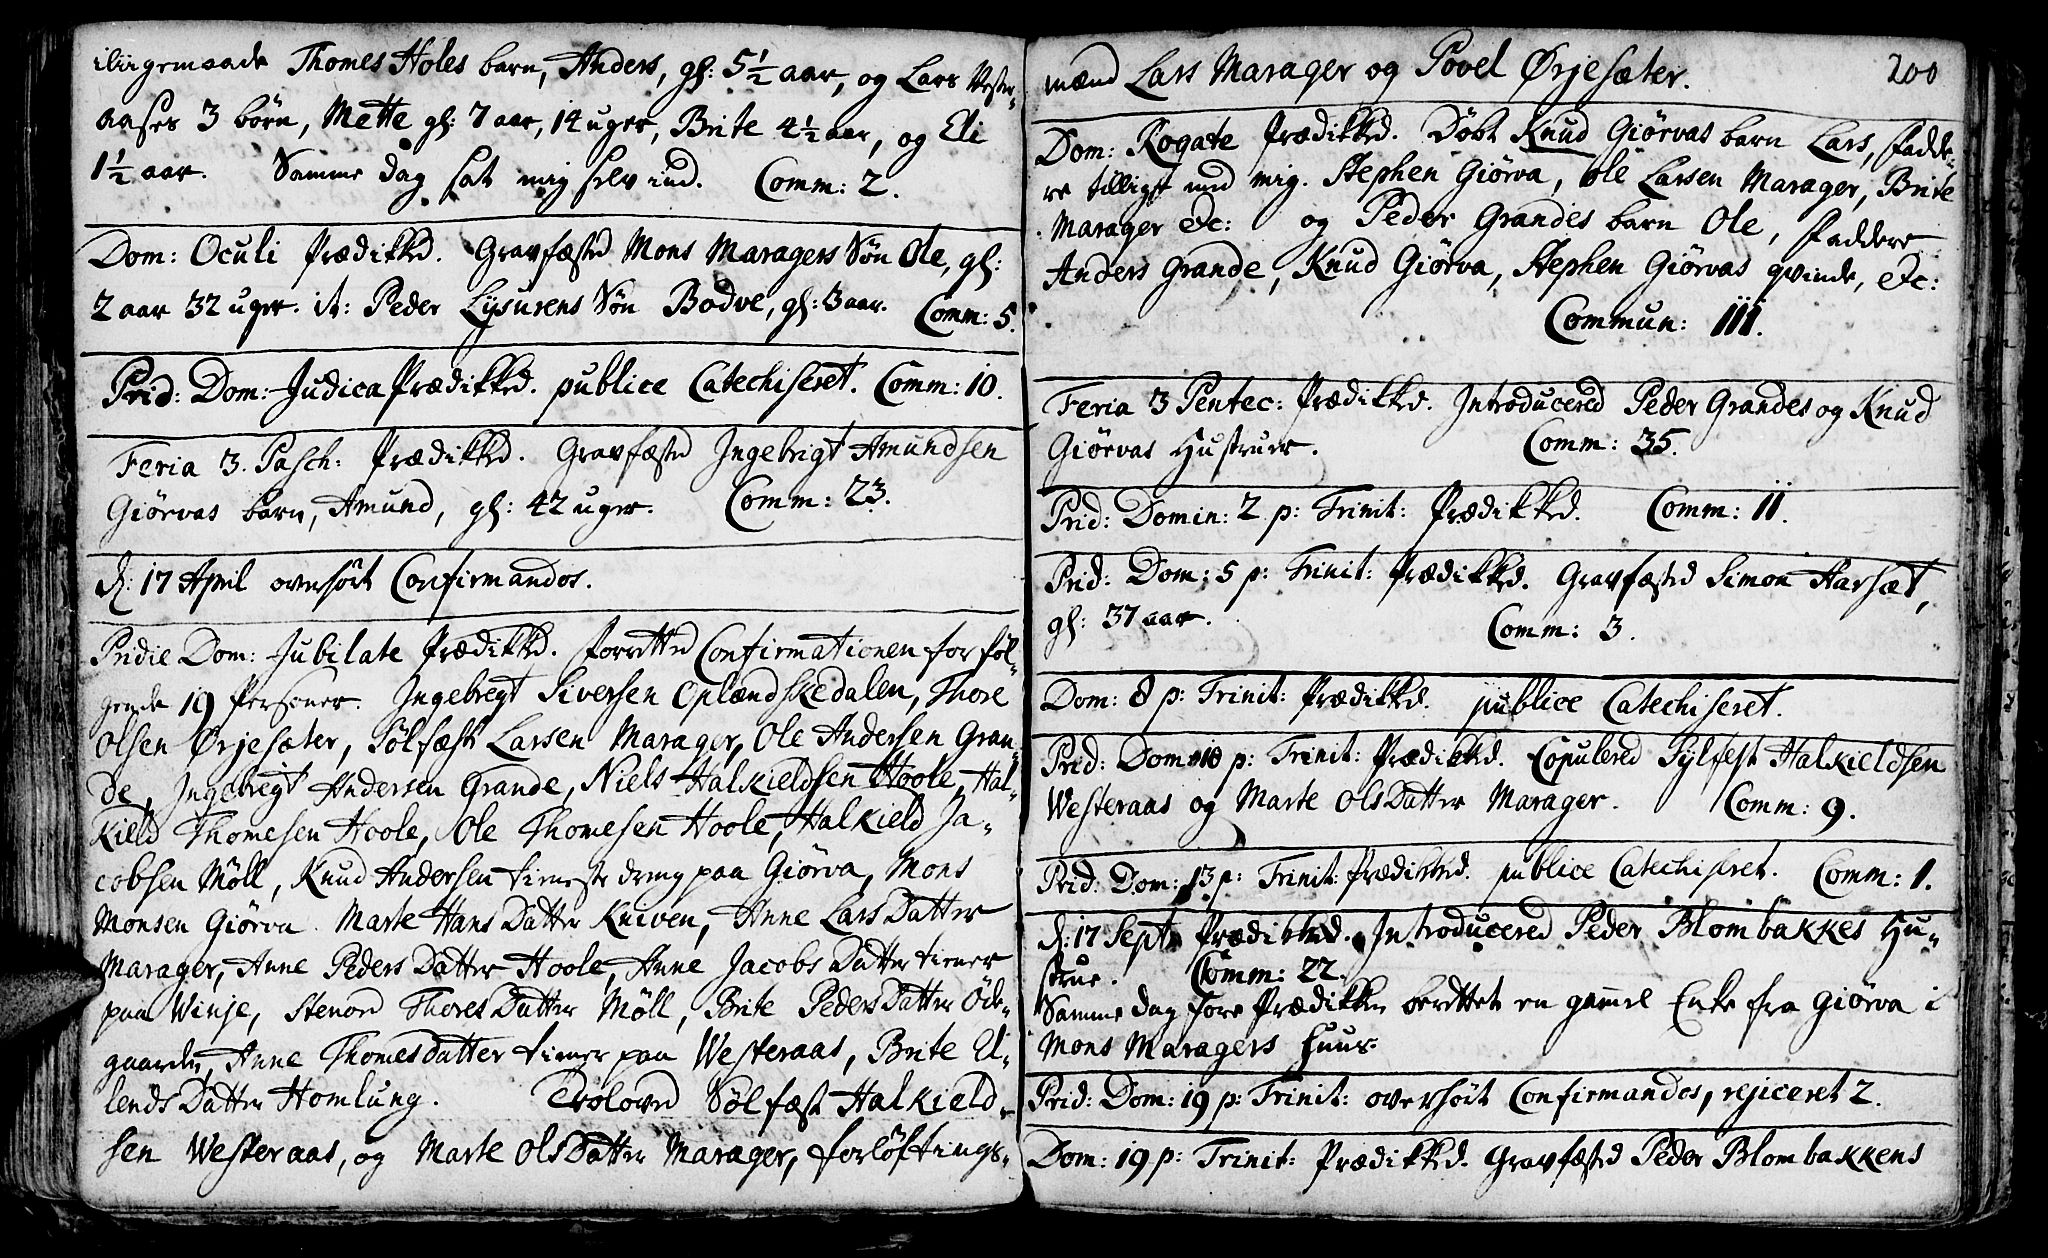 iligemaade Thomes Holes barn, Anders, gl: 5½ aar, og Lars Vester-
aases 3 börn, Mette gl: 7 aar, 14 uger, Brite 4½ aar, og Eli
1½ aar. Samme dag sat mig selv ind. Comm: 2.
Dom: Oculi Prædikked. Gravfæsted Mons Maragers Søn Ole, gl:
2 aar 32 uger. it: Peder Lysurens Søn Bodve, gl: 3 aar. Comm: 5.
Prid: Dom: Judica Prædikked. publice Catechiseret. Comm: 10.
Feria 3. Pasch: Prædikked. Gravfæsted Ingebrigt Amundsen
Giörvas barn, Amund, gl: 42 uger. Comm: 23.
d: 17 April overhört Confirmandos.
Pridie Dom: Jubilate Prædikked. forretted Confirmationen for föl-
gende 19 Personer. Ingebregt Siversen Oplændskedalen, Thore
Olsen Ørjesæter, Sölfæst Larsen Marager, Ole Andersen Gran-
de, Ingebrigt Andersen Grande, Niels Halkieldsen Hoole, Hal-
kield Thomesen Hoole, Ole Thomesen Hoole, Halkield Ja-
cobsen Möll, Knud Andersen tieneste dreng paa Giörva, Mons
Monsen Giörva. Marte HansDatter Kniven, Anne LarsDatter
Marager, Anne PedersDatter Hoole, Anne JacobsDatter tiener
paa Winje, Stenor ThoresDatter Möll, Brite PedersDatter Öde-
gaarden, Anne Thomesdatter tiener paa Westeraas, Brite El-
lendsDatter Homlung. Troloved Sölfæst Halkield-
sen Westeraas, og Marte OlsDatter Marager, forlöftings-
200
mænd Lars Marager og Povel Ørjesæter.
Dom: Rogate Prædikked. Döbt Knud Giörvas barn Lars, fadde-
re tilligst med mig. Stephen Giörva, Ole Larsen Marager, Brite
Marager &c: og Peder Grandes barn Ole, faddere
Anders Grande, Knud Giörva, Stephen Giörvas qvinde, &c:
Commun: 111.
Feria 3 Pentec: Prædikked. Introducered Peder Grandes og Knud
Giörvas Hustruer. Comm: 35.
Prid: Domin: 2 p: Trinit: Prædikked. Comm: 11.
Prid: Dom: 5 p: Trinit: Prædikked. Gravfæsted Simon Aarsæt,
gl: 37 aar. Comm: 3.
Dom: 8 p: Trinit: Prædikked. publice Catechiseret.
Prid: Dom: 10 p: Trinit: Prædikked. Copulered Sylfest Halkieldsen
Westeraas og Marte OlsDatter Marager. Comm: 9.
Prid: Dom: 13 p: Trinit: Prædikked. publice Catechiseret. Comm: 1.
d: 17 Sept: Prædikked. Introducered Peder Blombakkes Hu-
strue. Comm: 22.
Samme dag fore Prædikken berettet en gamel Enke fra Giörva i
Mons Maragers huus.
Prid: Dom: 19 p: Trinit: overhört Confirmandos, rejiceret 2.
Dom: 19 p: Trinit: Prædikked. Gravfæsted Peder Blombakkens